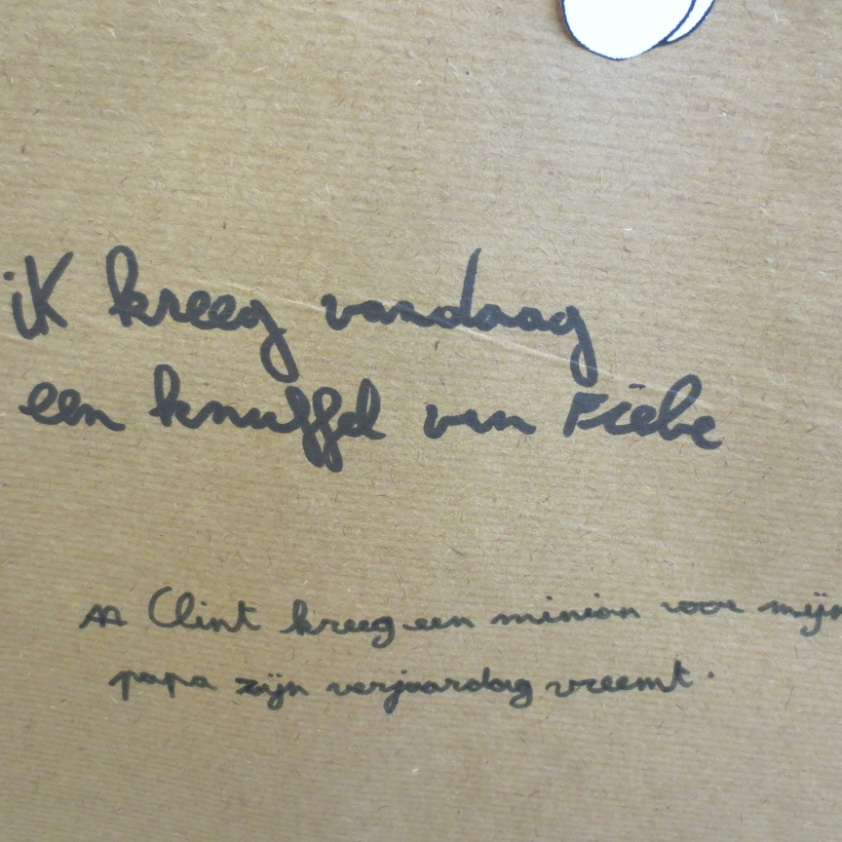 ik kreeg vandaag
een knuffel van Fiebe
Clint kreeg een minion voor mijn
papa zijn verjaardag vreemt.